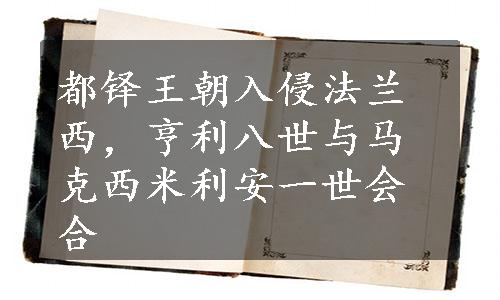 都铎王朝入侵法兰
西，亨利八世与马
克西米利安一世会
合